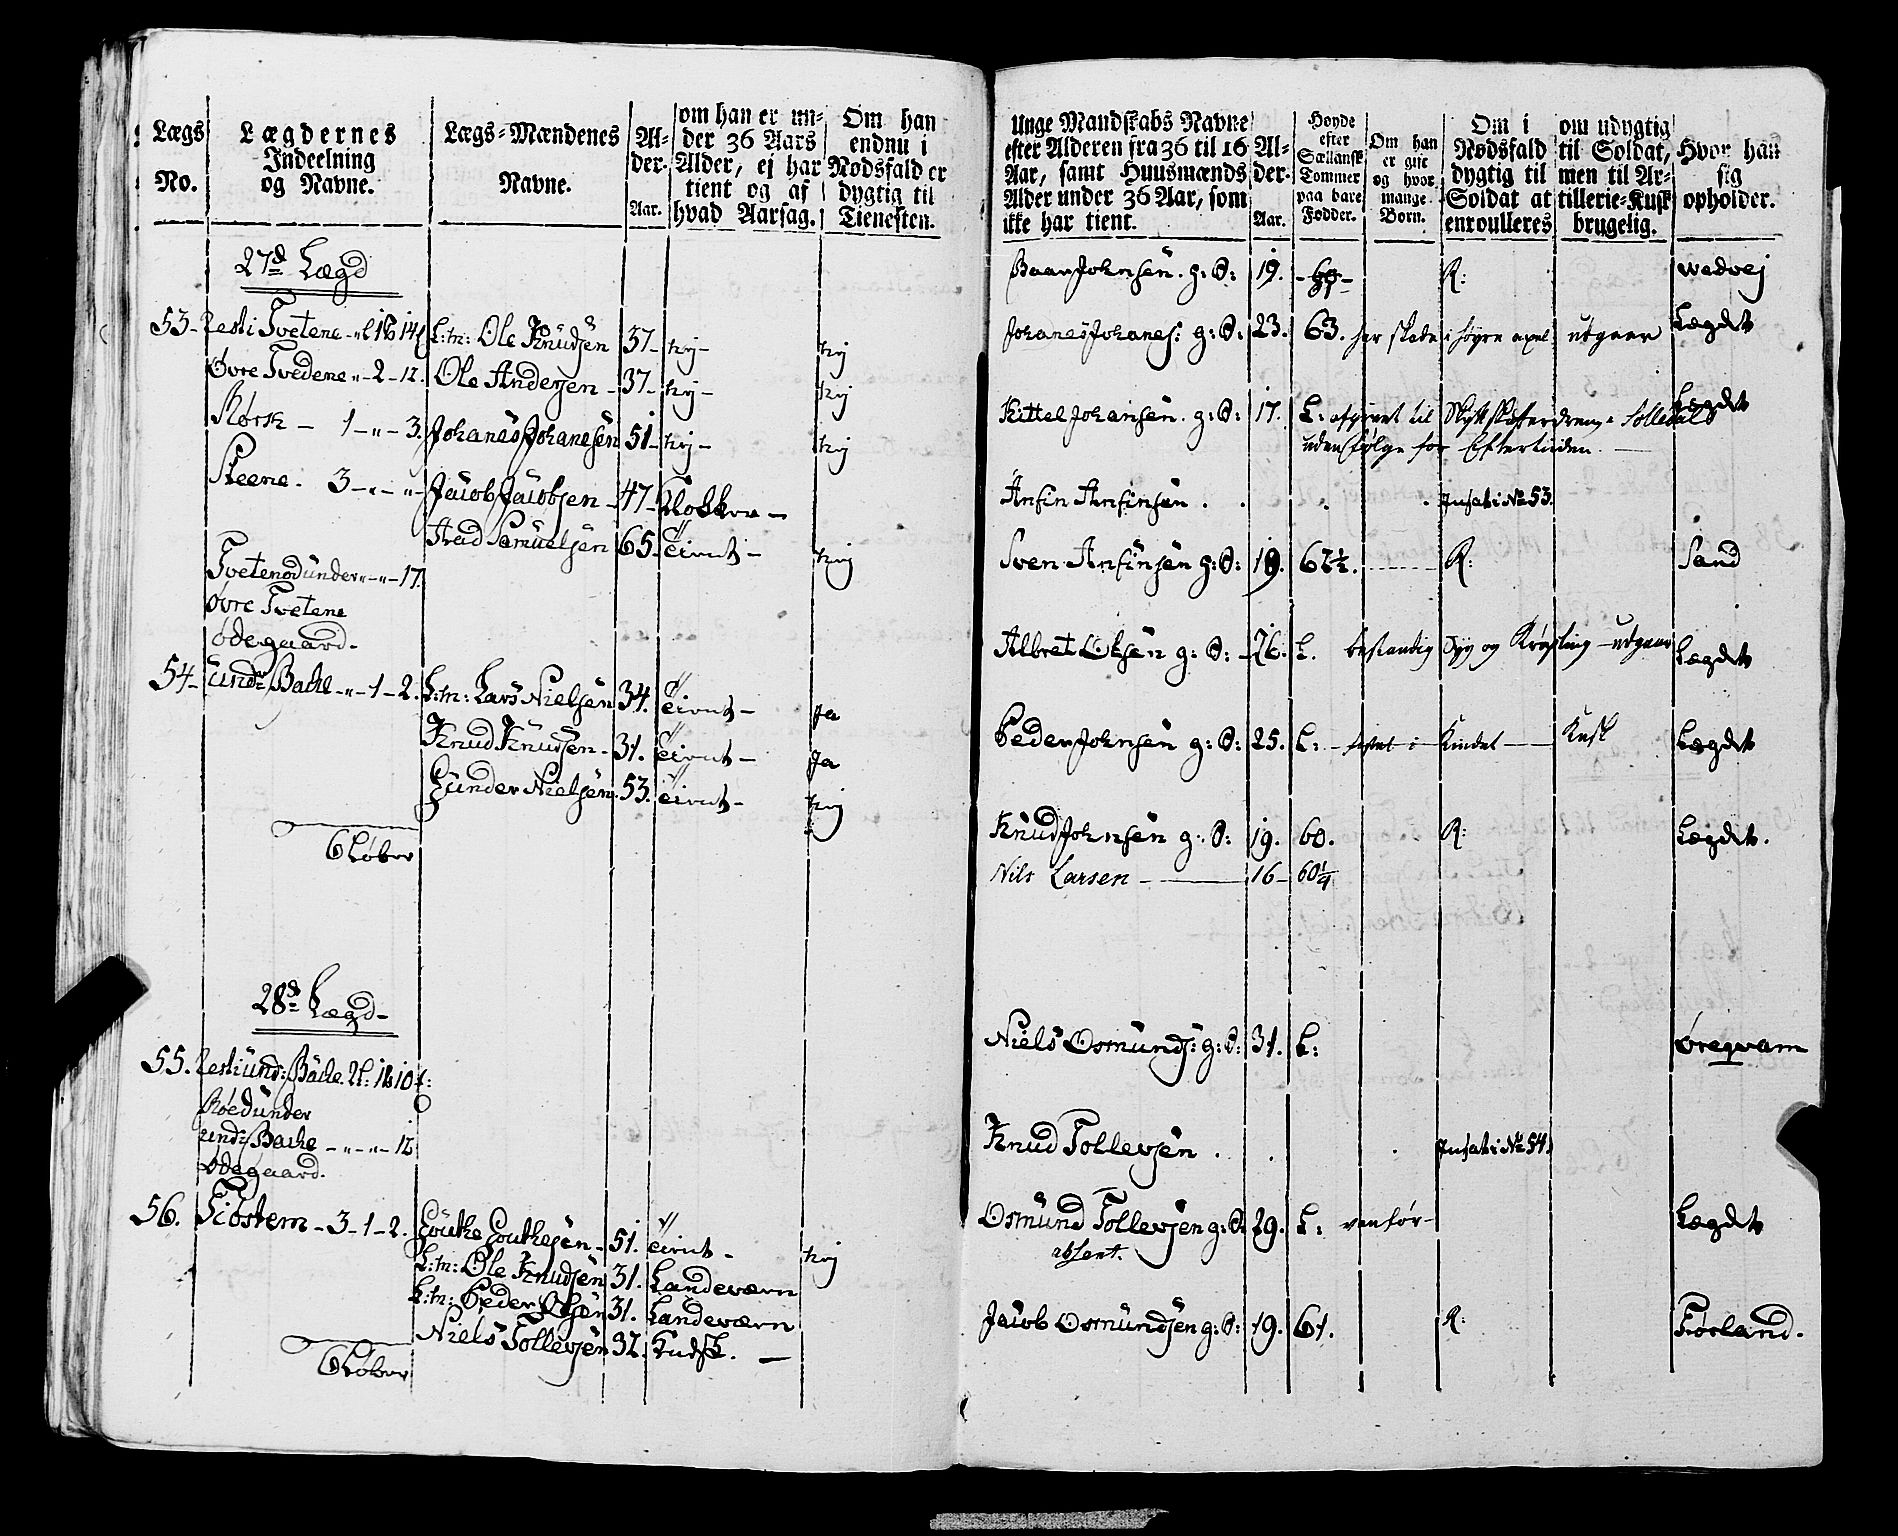 Lægs No.
Lægdernes Indeelning og Navne.
Lægs-Mændenes Navne.
Alder. Aar.
om han er under 36 Aars Alder, ej har tient og af hvad Aarsag.
Om han endnu i Nødsfald er dygtig til Tienesten.
27de Lægd
53- Resti Tvetene
L:m: Ole Knudsen 37- nej- nej
Øvre Tvedene - 2 - 12. Ole Andersen - 37- nej- nej
Rørsk - 1 - " - 3. Johanes Johanesen 51- nej- nej
Steene. 3 - " - " - Jacob Jacobsen - 47- Klokker -
Aad Samuelsen 65. tient - nej
Tvetenødunder - " - 17.
Øvre Tvetene
Ødegaard.
54- und: Bache - " - 1 - 2. L:m: Lars Nielsen 34. tient - Ja
Knud Knudsen - 31. tient - Ja
Gunder Nielsen. 53. tient - nej
6 Løber
28de Lægd-
55. Resti und: Bache 2l: 1b 10f:
Røedunder
und: Bache - " - " - 12
Ødegaard.
56. Fiostem - 3 - 1 - 2. Gouthe Gouthesen - 51. tient - nej
L:m: Ole Knudsen 31. Landeværn
L:m: Peder Olsen 31. Landeværn
Niels Tollevsen 32. Kudsk. -
6 Løber
Unge Mandskabs Navne efter Alderen fra 36 til 16 Aar, samt Huusmænds Alder under 36 Aar, som ikke har tient.
Alder. Aar.
Høyde efter Sællansk Tommer paa bare Fødder.
Om han er gift og hvor mange Børn.
Om i Nødsfald dygtig til Soldat at enroulleres
om udygtig til Soldat, men til Artillerie-Kusk brugelig.
Hvor han sig opholder.
Baar Johnsen. g: S: 19. R: wedvej
Johanes Johanes: g: S: 23. 63. har skade i høyre axel: udgaar Lægdet
Kittel Johansen. g: S: 17. L: Lægdet
uden følge for Eftertiden.
Anfin Anfinsen . . . . Insat i No 53.
Sven Anfinsen g: S: 19. 62½. R: Sand
Albret Olsen g: S: - 26. L. bestandig Syg og Krøpling - udgaar Lægdet
Peder Johnsen g: S: 25. L: - Kusk Lægdet
Knud Johnsen g: S: 19. 60. R: Lægdet.
Nils Larsen - 16 - 60¼
Niels Osmunds: g: S: 31. L: Øreqvam
Knud Tollevsen . . . Insat i No 54.
Osmund Tollevsen g: S: 29. L: vanfør - Lægdet
absent.
Jacob Osmundsen g: S: 19. 61. R: Førland.